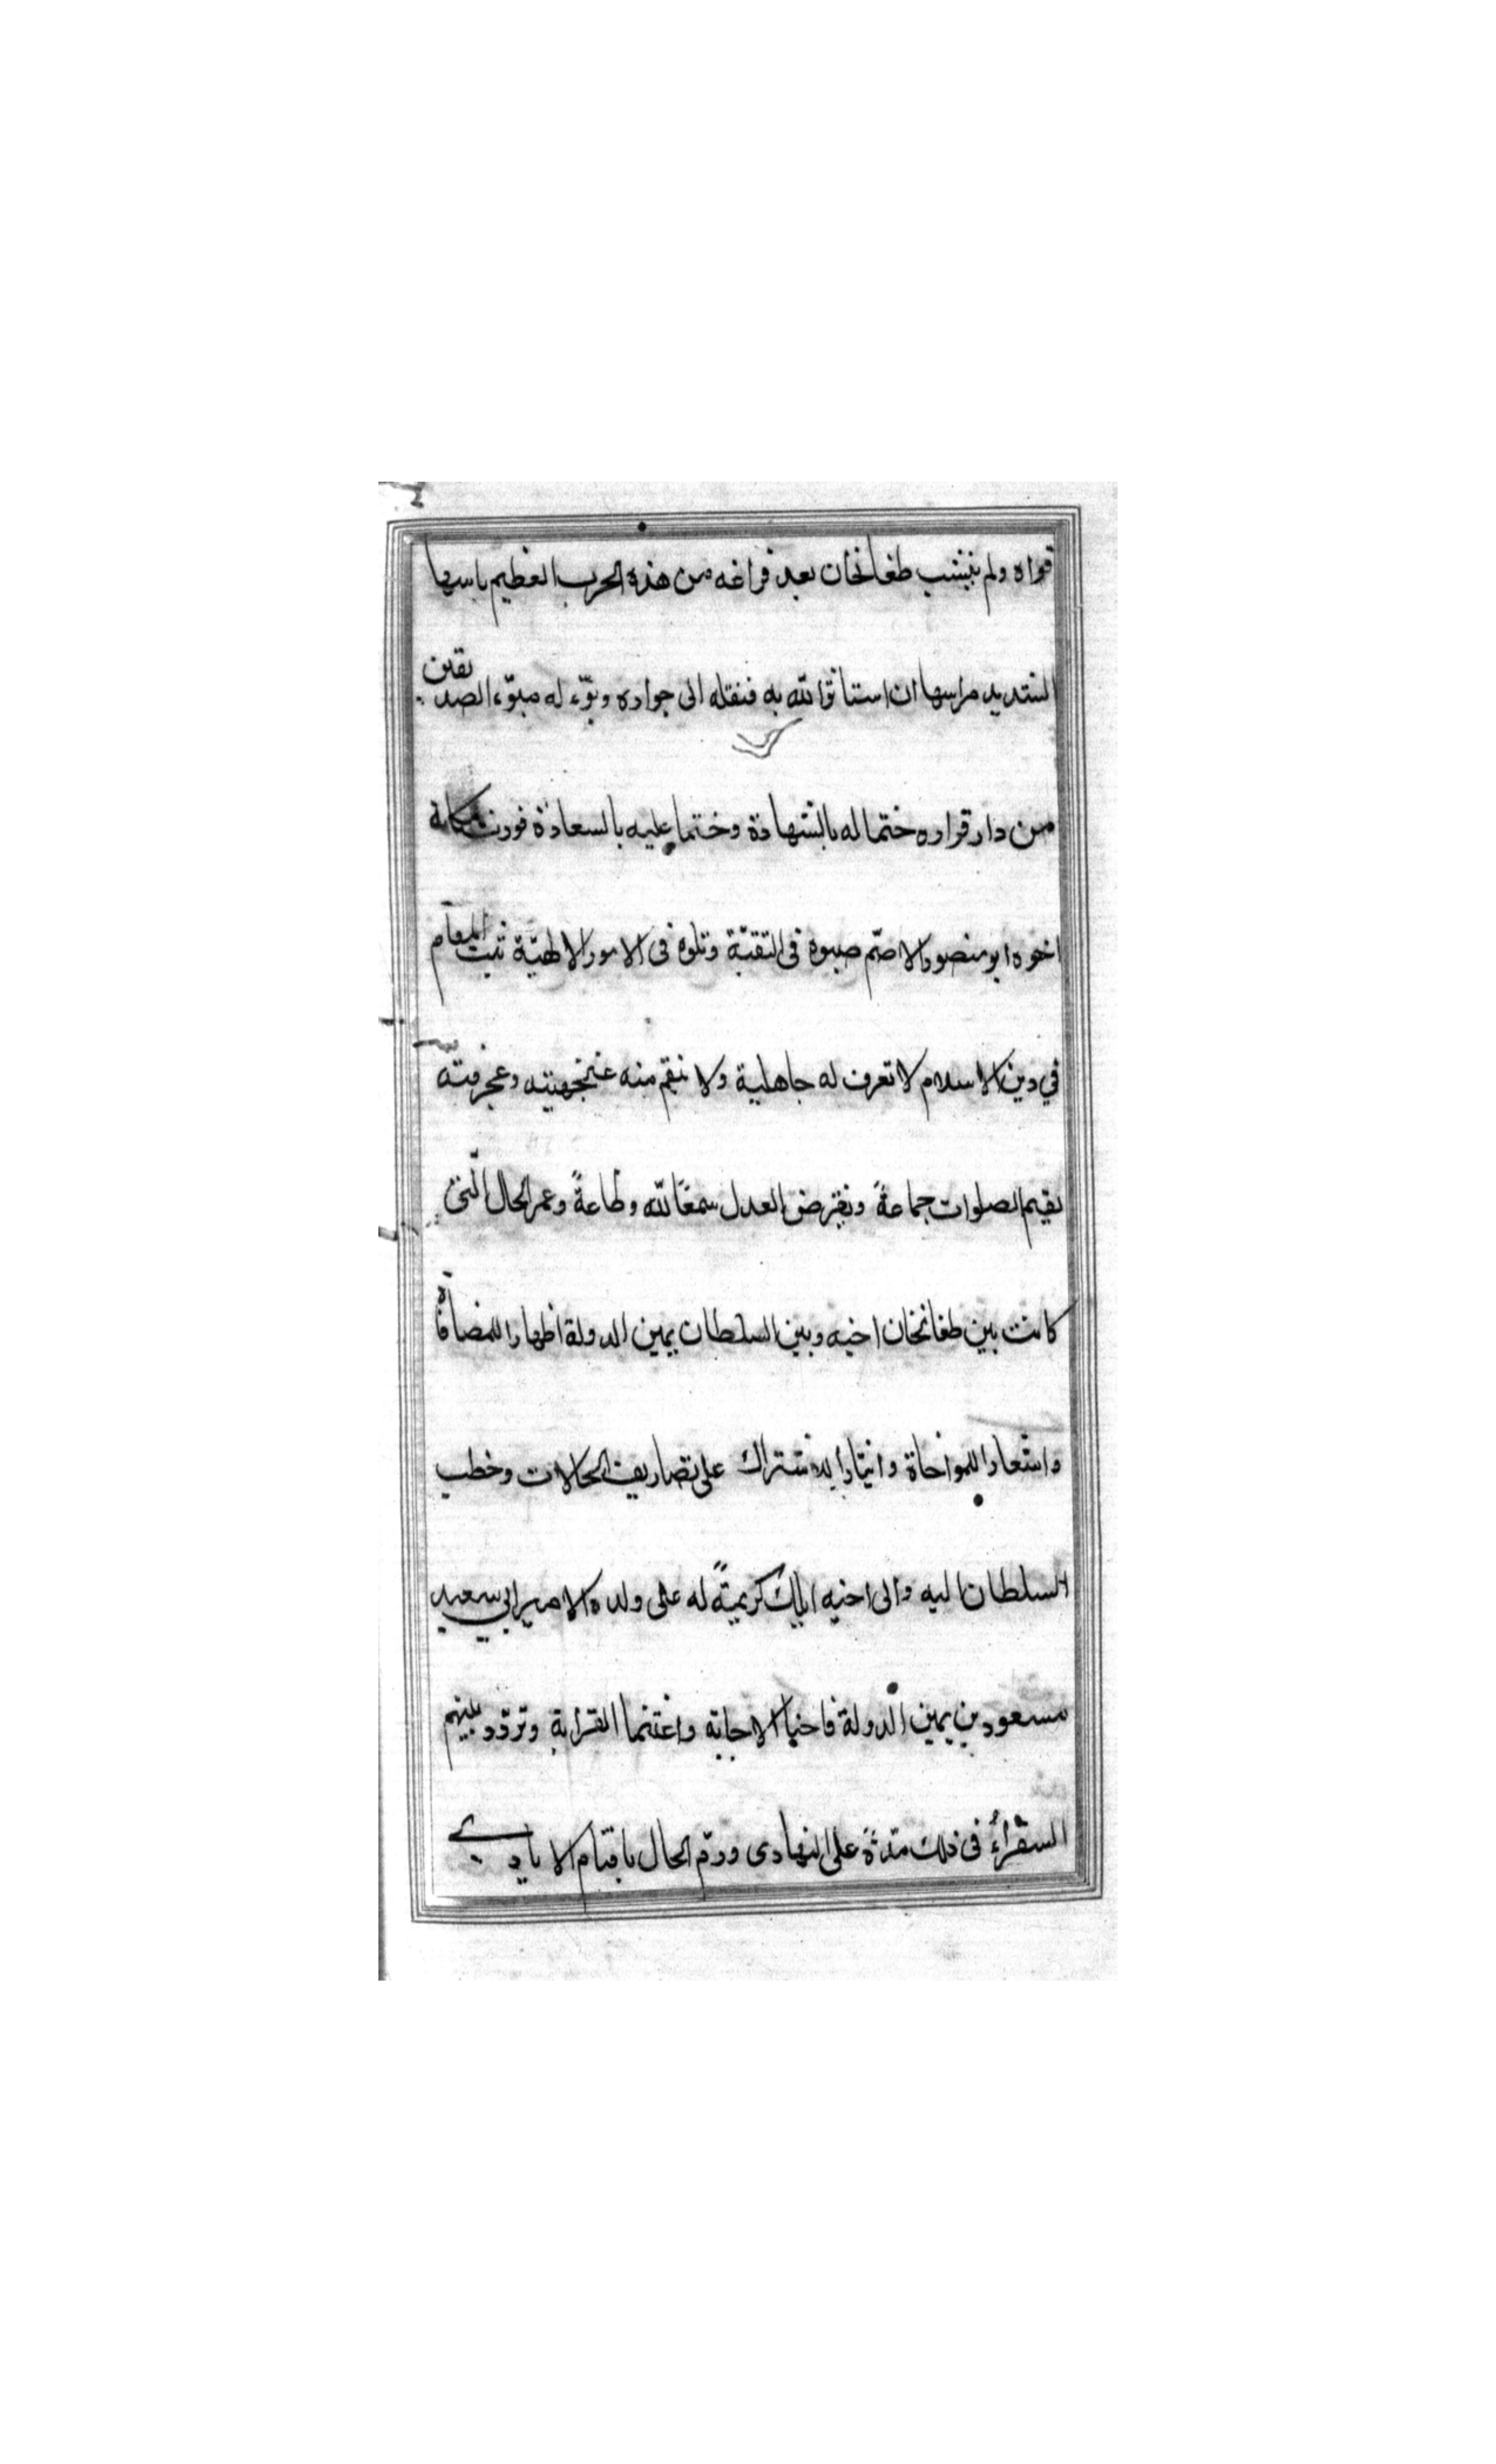 قواه ولم ينشب طغانخان بعد فراغه من هذه الحرب العظيم باسها
الشديد مراسها ان استاثر الله به فنقله الى جواره وبوّء له مبوّء الصديقين
من دار قراره ختما له بالشهادة وختما عليه بالسعادة فورث مكانه
اخوه ابو منصور الاصمّ صبوه فى التقيّة وتلوه فى الامور الالهيّة ثبت المقام
في دين الاسلام لا تعرف له جاهلية ولا ينقم منه عنجهيته وعجرفته
يقيم الصلوات جماعةً ويفترض العدل سمعًا لله وطاعةً وعمر الحال الّتى
كانت بين طغانخان اخيه وبين السلطان يمين الدولة اظهارا للمصافاة
واشعارا للمواخاة وايثارا للاشتراك على تصاريف الحالات وخطب
السلطان اليه والى اخيه ايلك كريمةً له على ولده الامير ابي سعيد
مسعود بن يمين الدولة فاحبا الاجابة واغتنما القرابة وتردّد بينهم
السفراءُ فى ذلك مدّةً على التهادى ورمّ الحال باقتسام الايادي